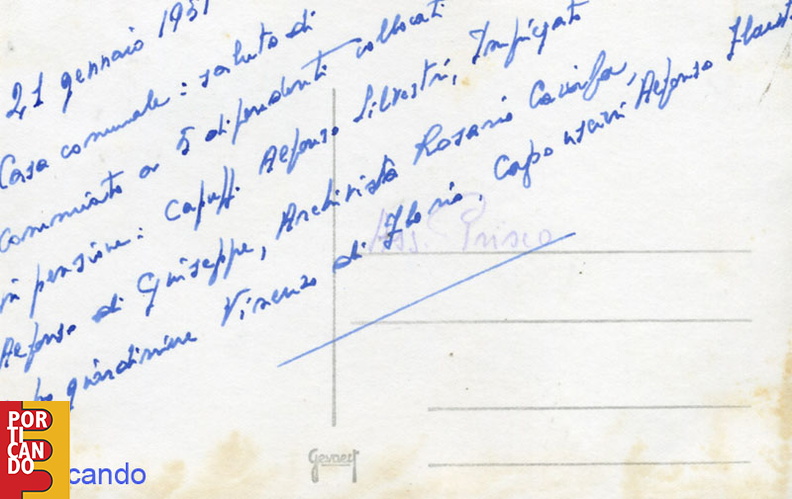 21 gennaio 1951
Casa comunale: saluto di
commiato a 5 dipendenti collocati
in pensione: Capuff. Alfonso Silvestri, Impiegato
Alfonso di Giuseppe, Archivista Rosario Cavaifa,
giardiniere Vincenzo di Florio, Capo uscieri Alfonso
Ass. Prisco
Gevaert
PORTICANDO
cando